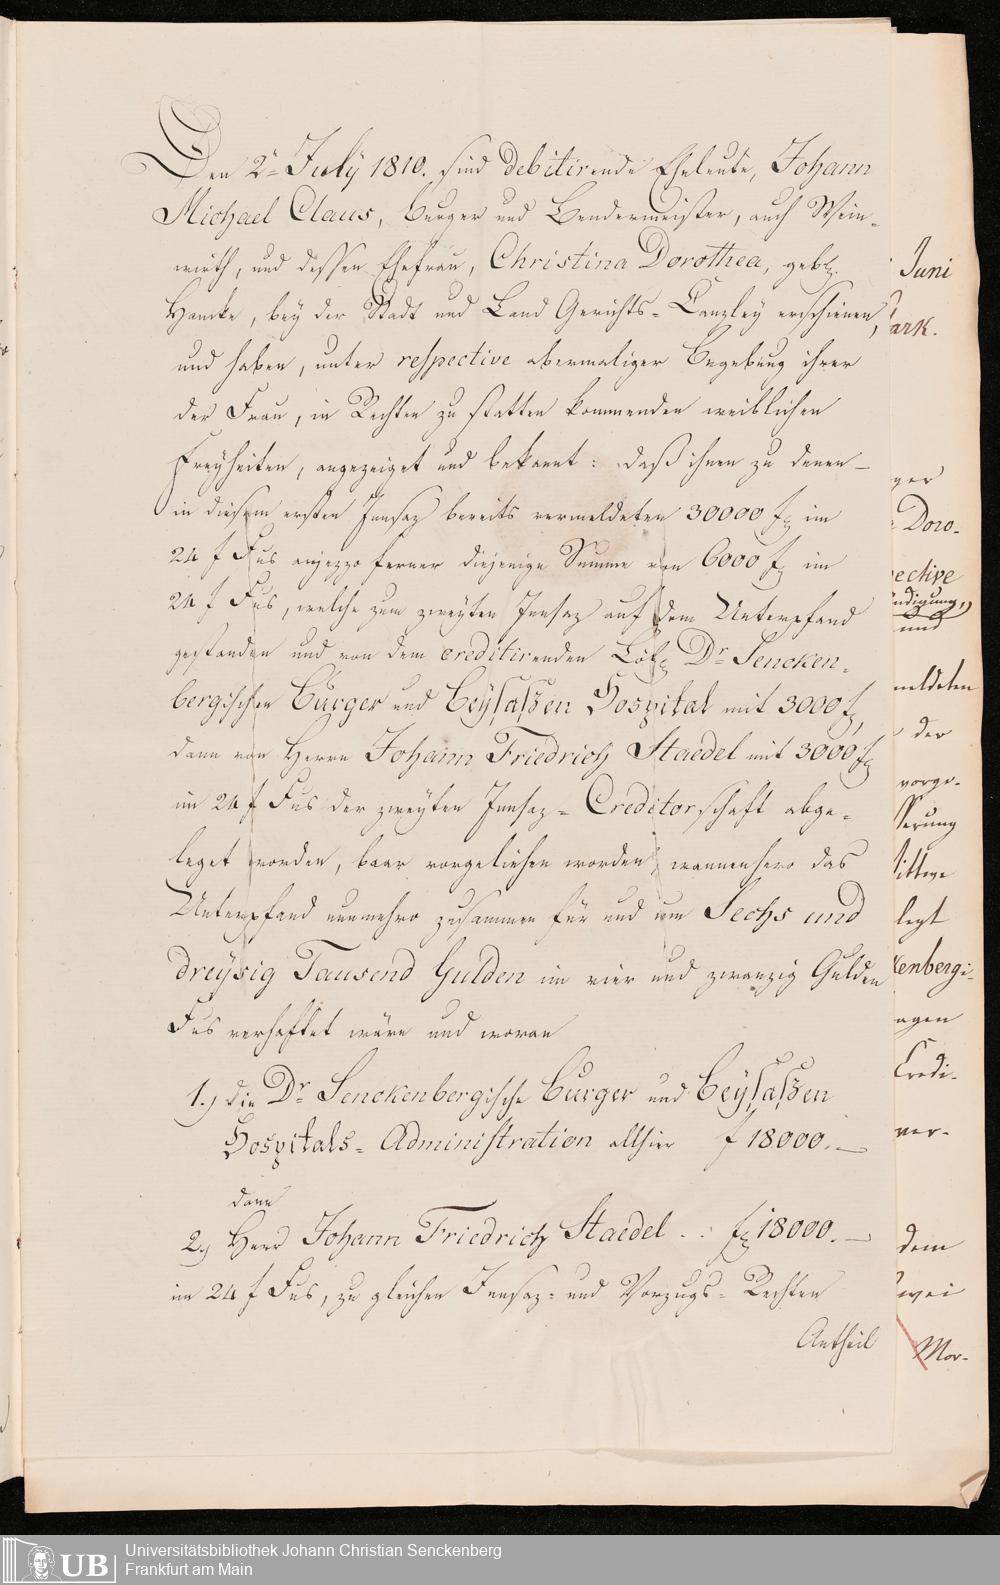 Den 2ⁿ July 1810. sind debitirende Eheleute, Johann
Michael Claus, burger und Bendermeister, auch Wein-
wirth, und dessen Ehefrau, Christina Dorothea, gebh.
Hancke, bey der Stadt und Land Gerichts-Canzley erschienen,
und haben, unter respective abermaliger Begebung ihrer
der Frau, in Rechten zu statten kommenden weiblichen
Freyheiten, angezeiget und bekannt: daß ihnen zu denen
in diesem ersten Innsaz bereits vermeldeten 30000 f. im
24 f Fus anjezzo ferner diejenige Summe von 6000 f. im
24 f Fus, welche zum zweyten Innsaz auf dem Unterpfand
gestanden und von dem creditirenden Löb. Dr. Sencken-
bergischen Bürger und Beysaßen Hospital mit 3000 f,
dann von Herrn Johann Friedrich Staedel mit 3000 f.
im 24 f Fus der zweyten Innsaz-Creditorschaft abge-
leget worden, baar vorgeliehen worden, wannenhero das
Unterpfand nunmehro zusammen für und um Sechs und
dreysig Tausend Gulden im vier und zwanzig Gulden
Fus verhaftet wäre und woran
1.) die Dr. Senckenbergische Bürger und Beysaßen
Hospitals-Administration allhier f 18000.—
dann
2.) Herr Johann Friedrich Staedel . : f. 18000.—
im 24 f Fus, zu gleichen Innsaz- und Vorzugs-Rechten
Antheil
Juni
ark.
ger
Doro-
pective
ndigung,
und
meldeten
der
vorge-
sserung
Wittwe
legt
kenbergi-
agen
Credi-
ver-
dem
zwei
Mor-
UB
Universitätsbibliothek Johann Christian Senckenberg
Frankfurt am Main